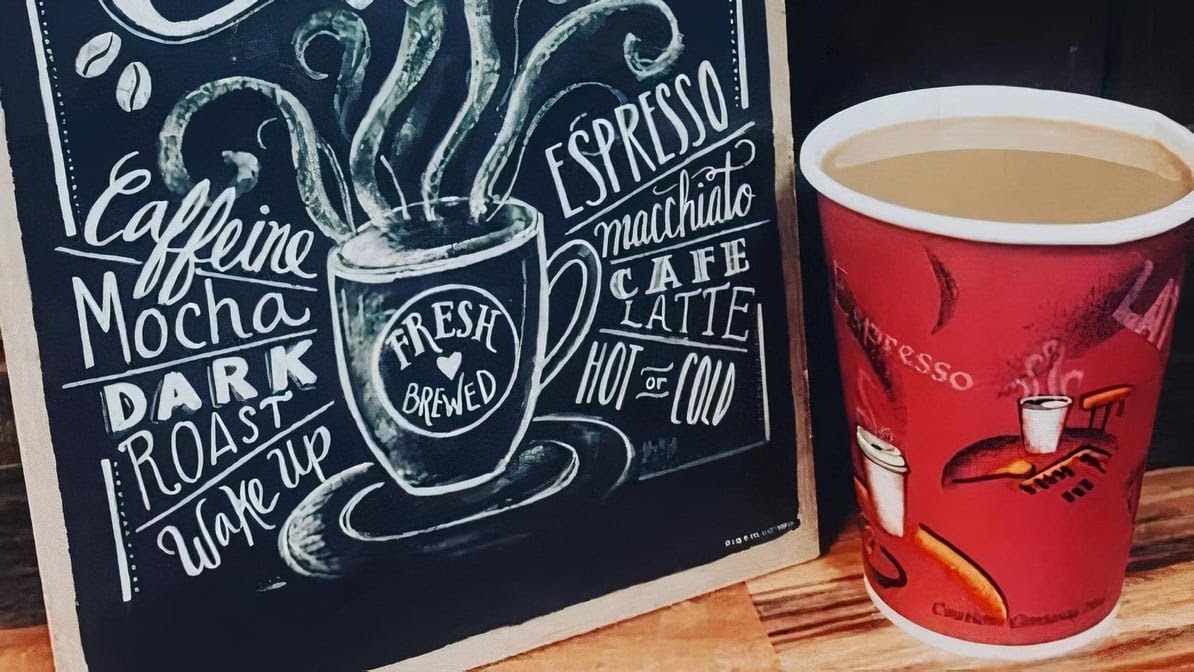 Caffeine
Mocha
DARK
ROAST
Wake Up
FRESH
BREWED
ESPRESSO
macchiato
CAFE
LATTE
HOT or COLD
Espresso